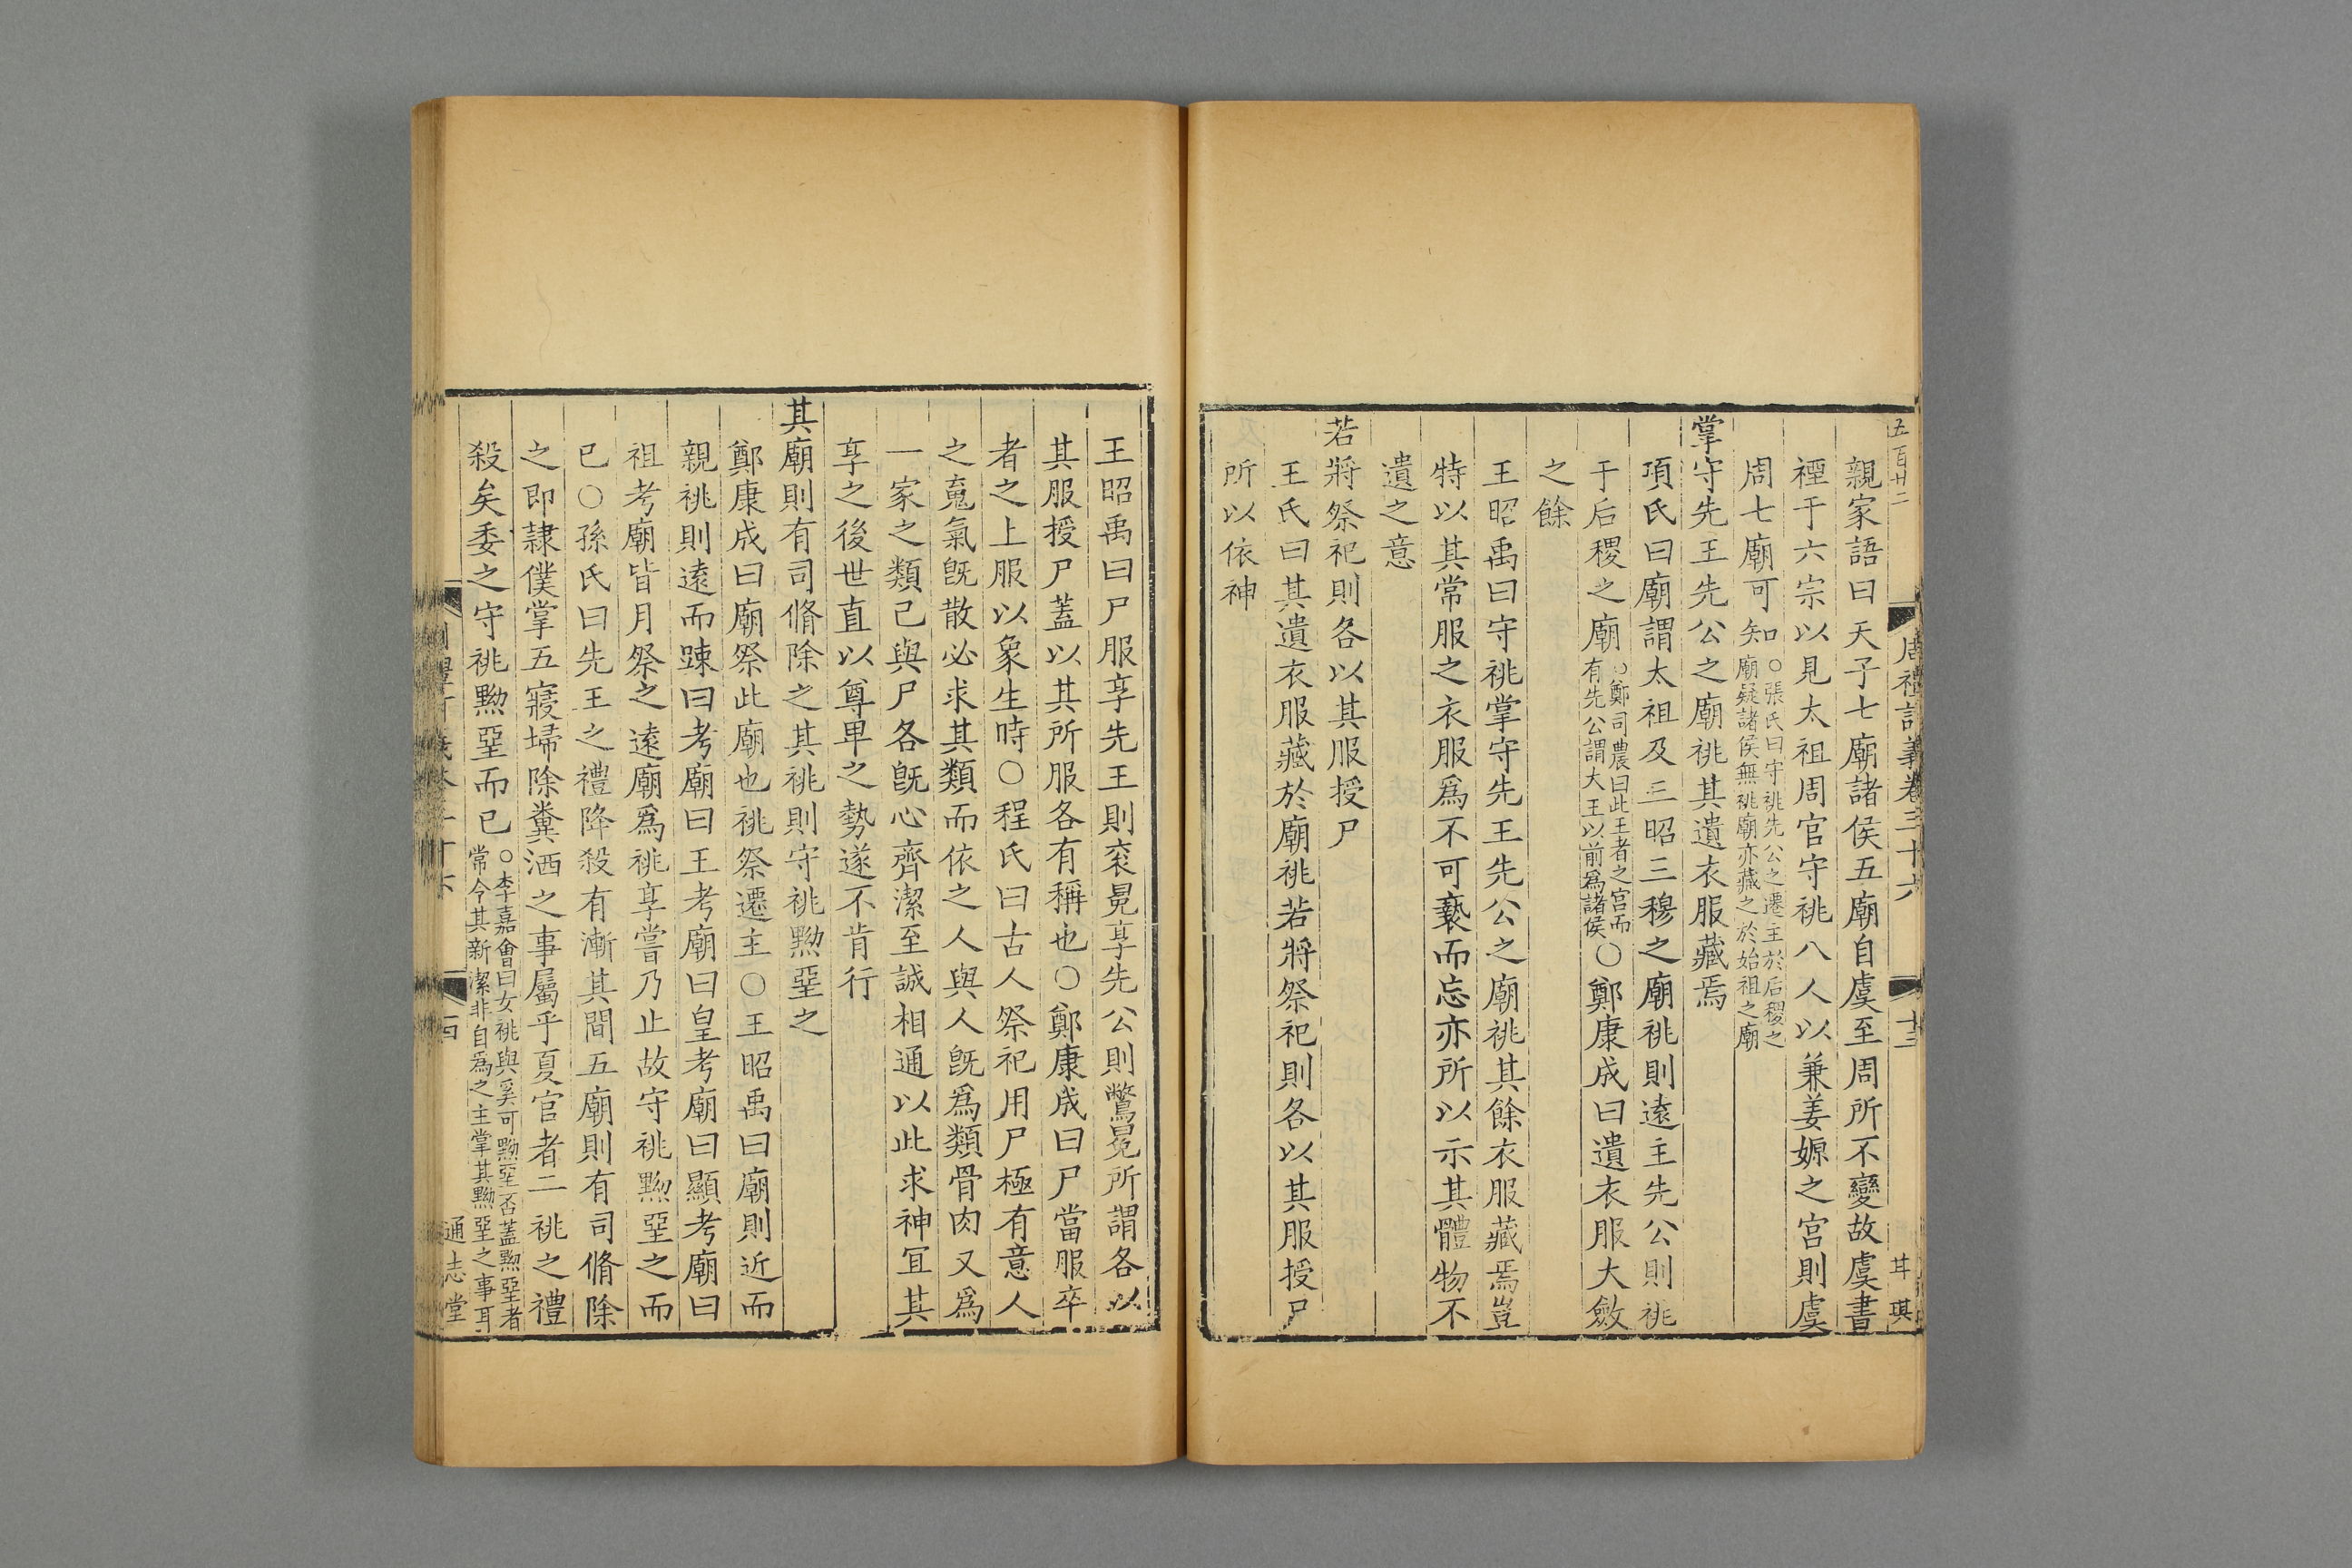 五百廿二
周禮訂義卷三十六
十三
甘
琪
親家語曰天子七廟諸侯五廟自虞至周所不變故虞書
禋于六宗以見太祖周官守祧八人以兼姜嫄之宮則虞
周七廟可知○張氏曰守祧先公之遷主於后稷之廟疑諸侯無祧廟亦藏之於始祖之廟
掌守先王先公之廟祧其遺衣服藏焉
項氏曰廟謂太祖及三昭三穆之廟祧則遠主先公則祧
于后稷之廟○鄭司農曰此王者之宮而有先公謂大王以前爲諸侯○鄭康成曰遺衣服大斂
之餘
王昭禹曰守祧掌守先王先公之廟祧其餘衣服藏焉豈
特以其常服之衣服爲不可褻而忘亦所以示其體物不
遺之意
若將祭祀則各以其服授尸
王氏曰其遺衣服藏於廟祧若將祭祀則各以其服授尸
所以依神
王昭禹曰尸服享先王則衮冕享先公則鷩冕所謂各以
其服授尸蓋以其所服各有稱也○鄭康成曰尸當服卒
者之上服以象生時○程氏曰古人祭祀用尸極有意人
之䰟氣旣散必求其類而依之人與人旣爲類骨肉又爲
一家之類己與尸各旣心齊潔至誠相通以此求神宜其
享之後世直以尊卑之勢遂不肯行
其廟則有司脩除之其祧則守祧黝堊之
鄭康成曰廟祭此廟也祧祭遷主○王昭禹曰廟則近而
親祧則遠而踈曰考廟曰王考廟曰皇考廟曰顯考廟曰
祖考廟皆月祭之遠廟爲祧享嘗乃止故守祧黝堊之而
已○孫氏曰先王之禮降殺有漸其間五廟則有司脩除
之即隷僕掌五寢埽除糞洒之事屬乎夏官者二祧之禮
殺矣委之守祧黝堊而已○李嘉會曰女祧與奚可黝堊否蓋黝堊者常令其新潔非自爲之主掌其黝堊之事耳
通志堂